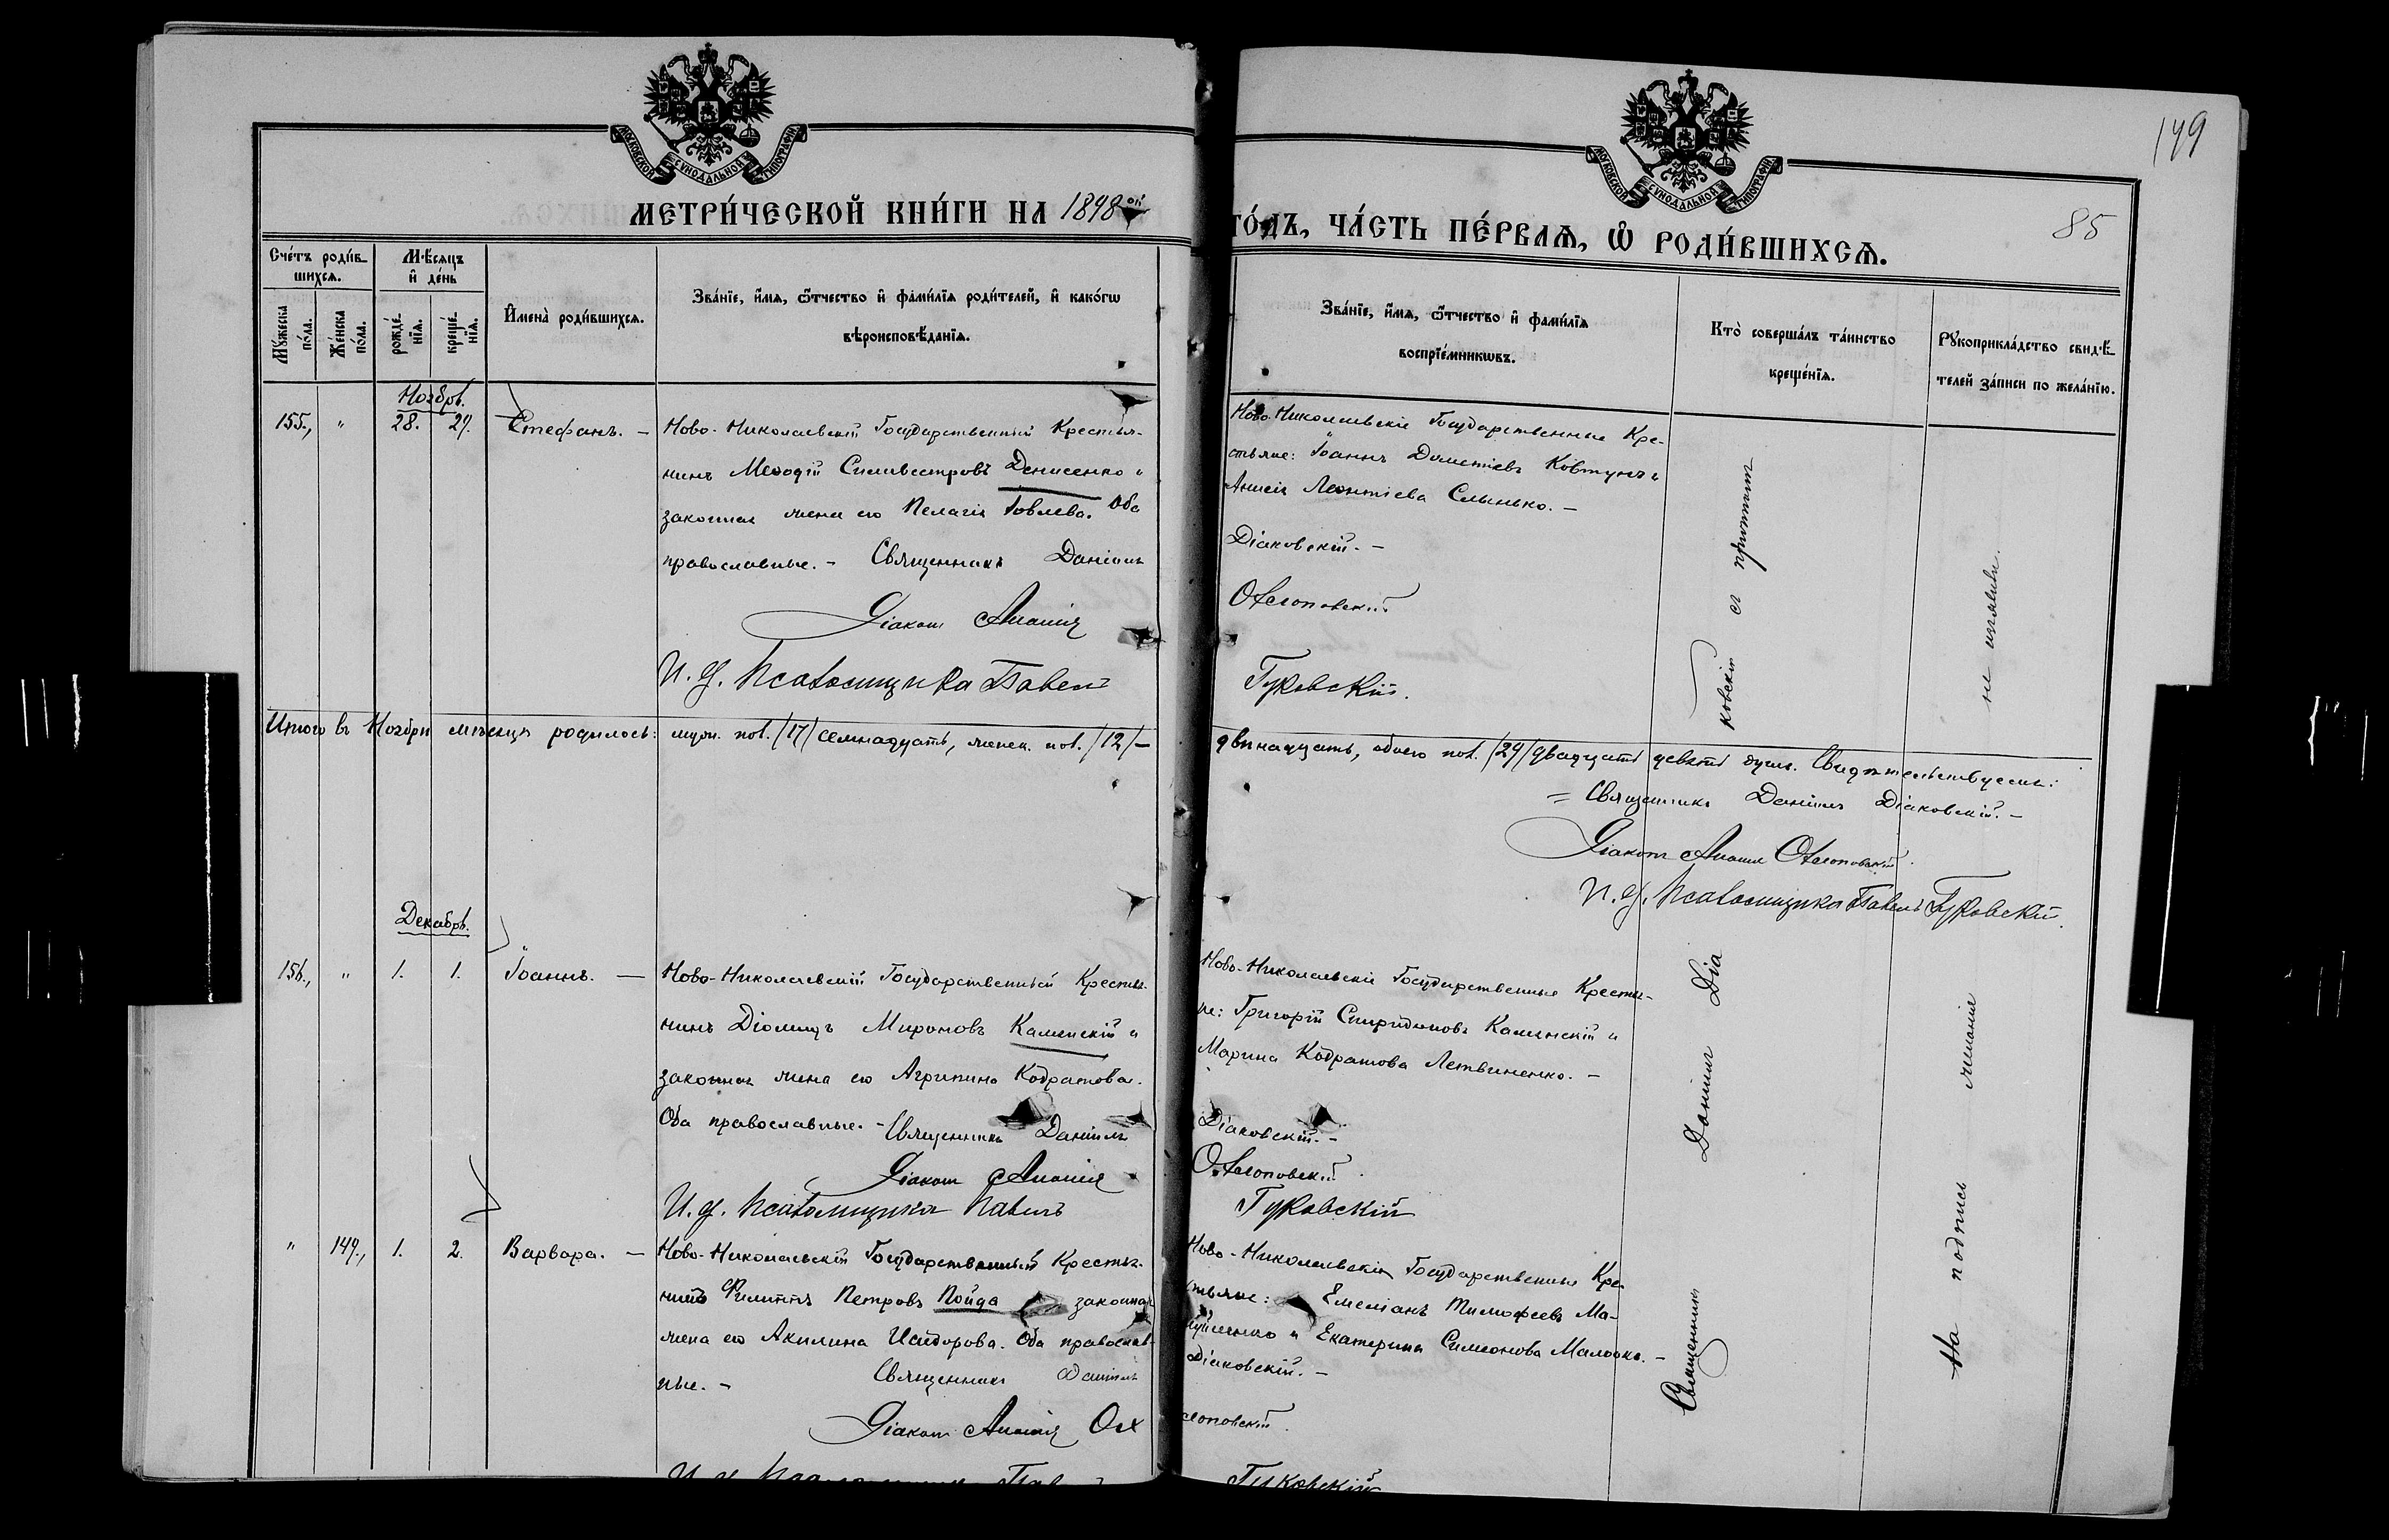 149
85
МОСКОВСКОЙ СѴНОДАЛЬНОЙ ТИПОГРАФІИ
МОСКОВСКОЙ СѴНОДАЛЬНОЙ ТИПОГРАФІИ
МЕТРИ́ЧЕСКОЙ КНИ́ГИ НА 1898ой
ГО́ДЪ, ЧА́СТЬ ПЕ́РВАѦ, Ѡ҆ РОДИ́ВШИХСѦ.
Сче́тъ роди́в-
шихсѧ.
Мꙋ́жеска по́ла.
Же́нска по́ла.
Мѣ́сѧцъ
и҆ де́нь
рожде́-
нїѧ.
креще́-
нїѧ.
И҆мена̀ роди́вшихсѧ.
Зва́нїе, и҆́мѧ, ѻ҆́тчество и҆ фами́лїѧ роди́телей, и҆ како́гѡ
вѣроисповѣ́данїѧ.
Зва́нїе, и҆́мѧ, ѻ҆́тчество и҆ фами́лїѧ
воспрїе́мникѡвъ.
Кто̀ соверша́лъ та́инство
креще́нїѧ.
Рꙋкоприкла́дство свидѣ́-
телей за́писи по жела́нїю.
Ноябрь.
155., " 28. 29. Стефанъ. —
Ново-Николаевскій Государственный Крестья-
нинъ Меѳодій Сильвестровъ Денисенко и
законная жена его Пелагія Іовлева. Оба
православные. — Священникъ Даніилъ
Діаконъ Ананія
И. д. Псаломщика Павелъ
Ново-Николаевскіе Государственные Кре-
стьяне: Іоаннъ Дометіевъ Ковтунъ и
Анисія Леонтіева Слынько. —
Діаковскій. —
Гуковскій.
ковскій съ причтомъ
не изъявили.
Итого въ Ноябрѣ мѣсяцѣ родилось: муж. пол. /17/ семнадцать, женск. пол. /12/ —
двѣнадцать, обоего пол. /29/ двадцать девять душъ. Свидѣтельствуемъ:
= Священникъ Даніилъ Діаковскій. —
Діаконъ Ананія
И. д. Псаломщика Павелъ Гуковскій.
Декабрь.
156., " 1. 1. Іоаннъ. —
Ново-Николаевскій Государственный Крестья-
нинъ Діомидъ Мироновъ Каменскій и
законная жена его Агрипина Кодратова.
Оба православные. — Священникъ Даніилъ
Діаконъ Ананія
И. д. Псаломщика Павелъ
Ново-Николаевскіе Государственные Крестья-
не: Григорій Спиридоновъ Каменскій и
Марина Кодратова Летвиненко. —
Діаковскій. —
Гуковскій
" 149., 1. 2. Варвара. —
Ново-Николаевскій Государственный Крестья-
нинъ Филиппъ Петровъ Пойда законная
жена его Акилина Исидорова. Оба православ-
ные. — Священникъ Даніилъ
Діаконъ Ананія
И. д. Псаломщика Павелъ
Ново-Николаевскіе Государственные Кре-
стьяне: Емеліанъ Тимофеевъ
и Екатерина Симеонова
Діаковскій. —
Гуковскій
Священникъ Даніилъ Діа
На подпись желанія